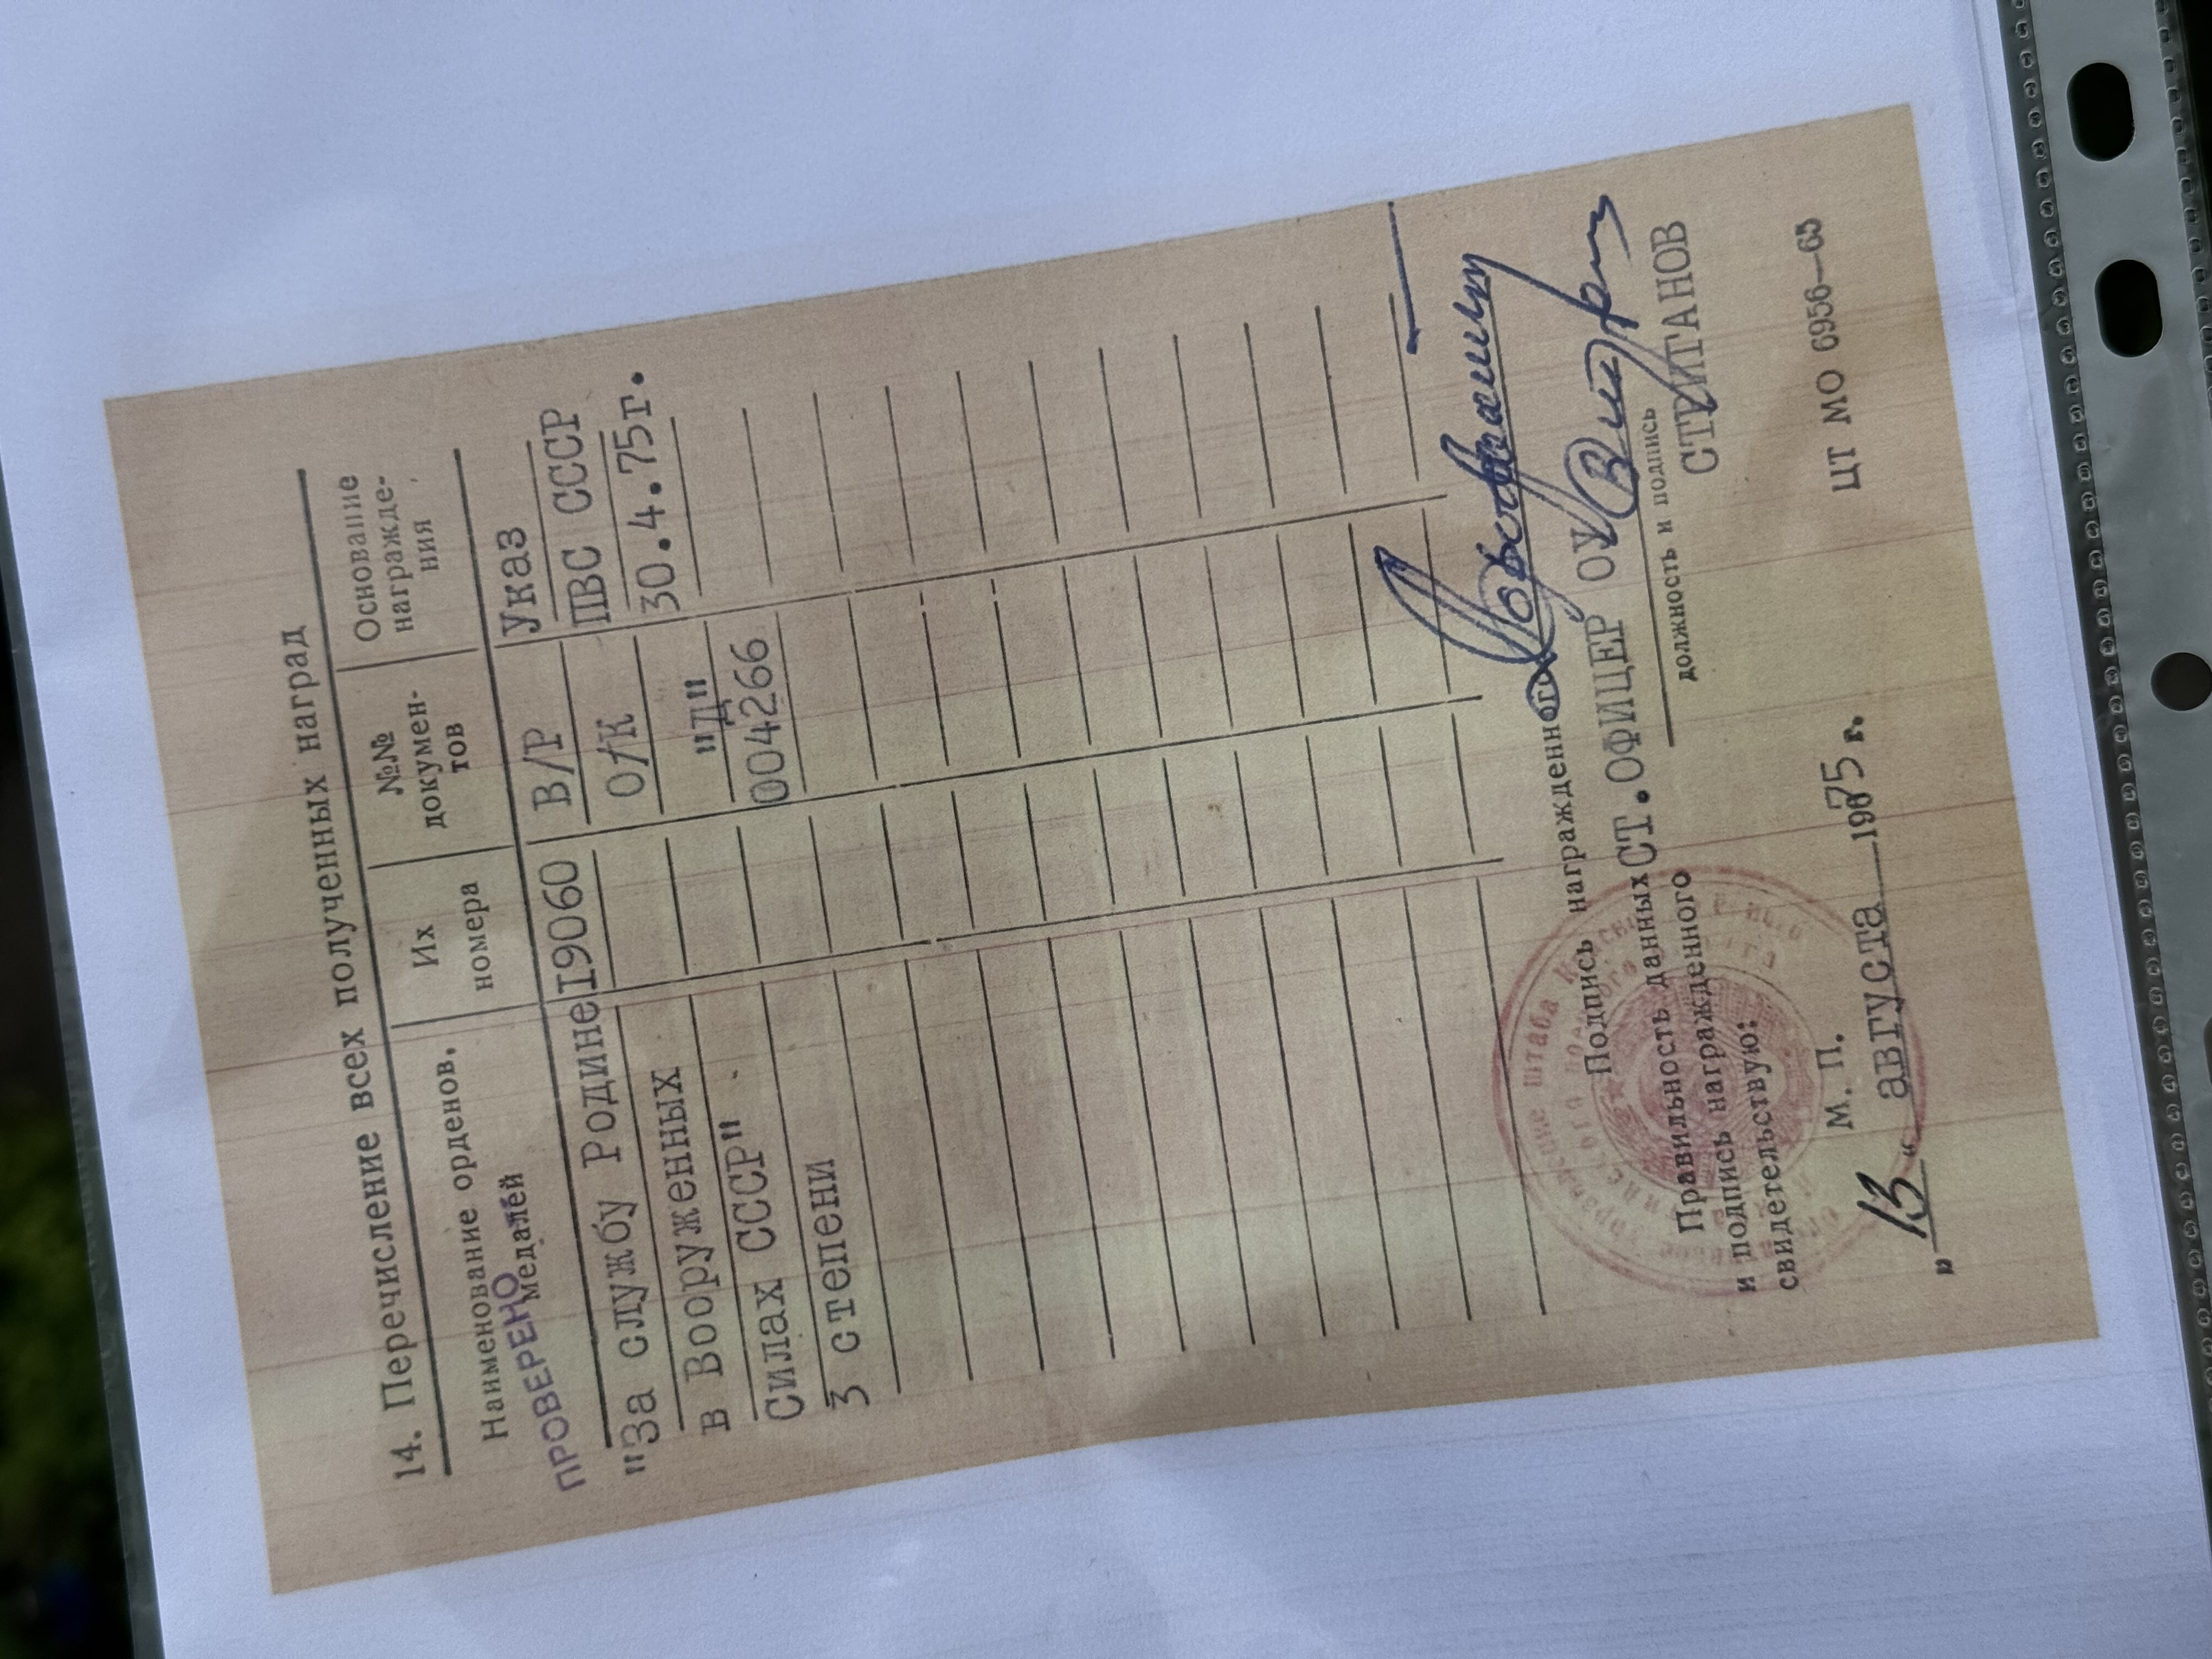 14. Перечисление всех полученных наград
Наименование орденов.
медалей
Их
номера
№№
докумен-
тов
Основание
награжде-
ния
ПРОВЕРЕНО
"За службу Родине
I9060
В/Р
Указ
в Вооруженных
О/К
ПВС СССР
Силах СССР"
"Д"
30.4.75г.
3 степени
004266
Подпись награжденного
Правильность данных
СТ.ОФИЦЕР ОУ
и подпись награжденного
должность и подпись
свидетельствую:
СТРИТАНОВ
М. П.
„ 13 “ августа 1975 г.
ЦТ МО 6956—65